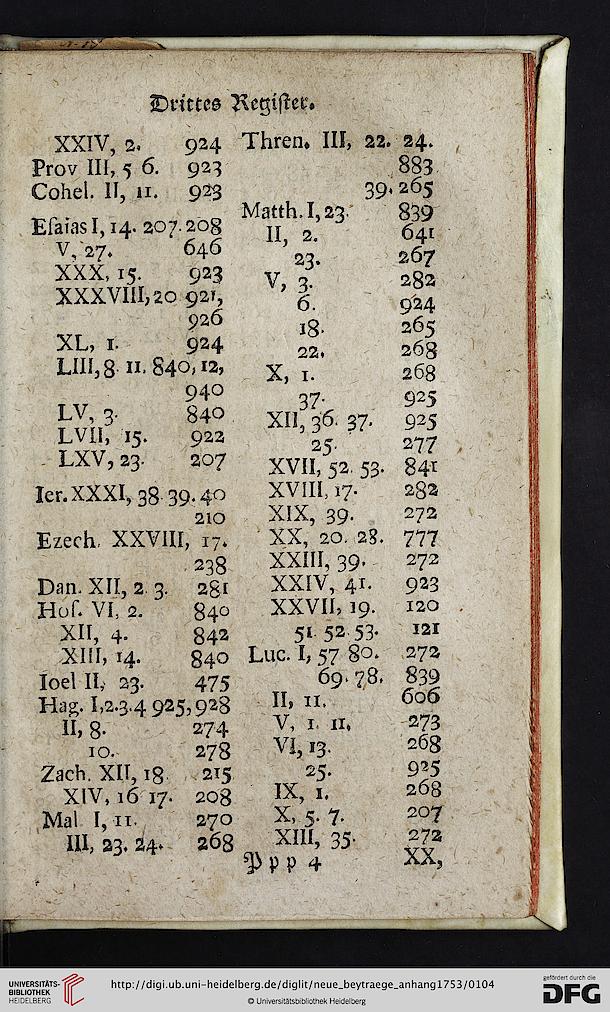 Drittes Regiſter.
XXIV, 2. 924
Prov III, 5 6. 923
Cohel. II, 11. 923
Eſaias I, 14. 207. 208
V, 27. 646
XXX, 15. 923
XXXVIII, 20 921,
926
XL, 1. 924
LIII, 8 11. 840, 12,
940
LV, 3. 840
LVII, 15. 922
LXV, 23. 207
Ier. XXXI, 38. 39. 40
210
Ezech. XXVIII, 17.
238
Dan. XII, 2 3. 281
Hoſ. VI, 2. 840
XII, 4. 842
XIII, 14. 840
Ioel II, 23. 475
Hag. I, 2. 3. 4 925, 928
II, 8. 274
10. 278
Zach. XII, 18. 215
XIV, 16 17. 208
Mal. I, 11. 270
III, 23. 24. 268
Thren. III, 22. 24.
883
39. 265
Matth. I, 23. 839
II, 2. 641
23. 267
V, 3. 282
6. 924
18. 265
22. 268
X, 1. 268
37. 925
XII, 36. 37. 925
25. 277
XVII, 52. 53. 841
XVIII, 17. 282
XIX, 39. 272
XX, 20. 28. 777
XXIII, 39. 272
XXIV, 41. 923
XXVII, 19. 120
51. 52. 53. 121
Luc. I, 57 80. 272
69. 78. 839
II, 11. 606
V, 1. 11. 273
VI, 13. 268
25. 925
IX, 1. 268
X, 5. 7. 207
XIII, 35. 272
Ppp 4 XX,
UNIVERSITÄTS-
BIBLIOTHEK
HEIDELBERG
http://digi.ub.uni-heidelberg.de/diglit/neue_beytraege_anhang1753/0104
© Universitätsbibliothek Heidelberg
gefördert durch die
DFG